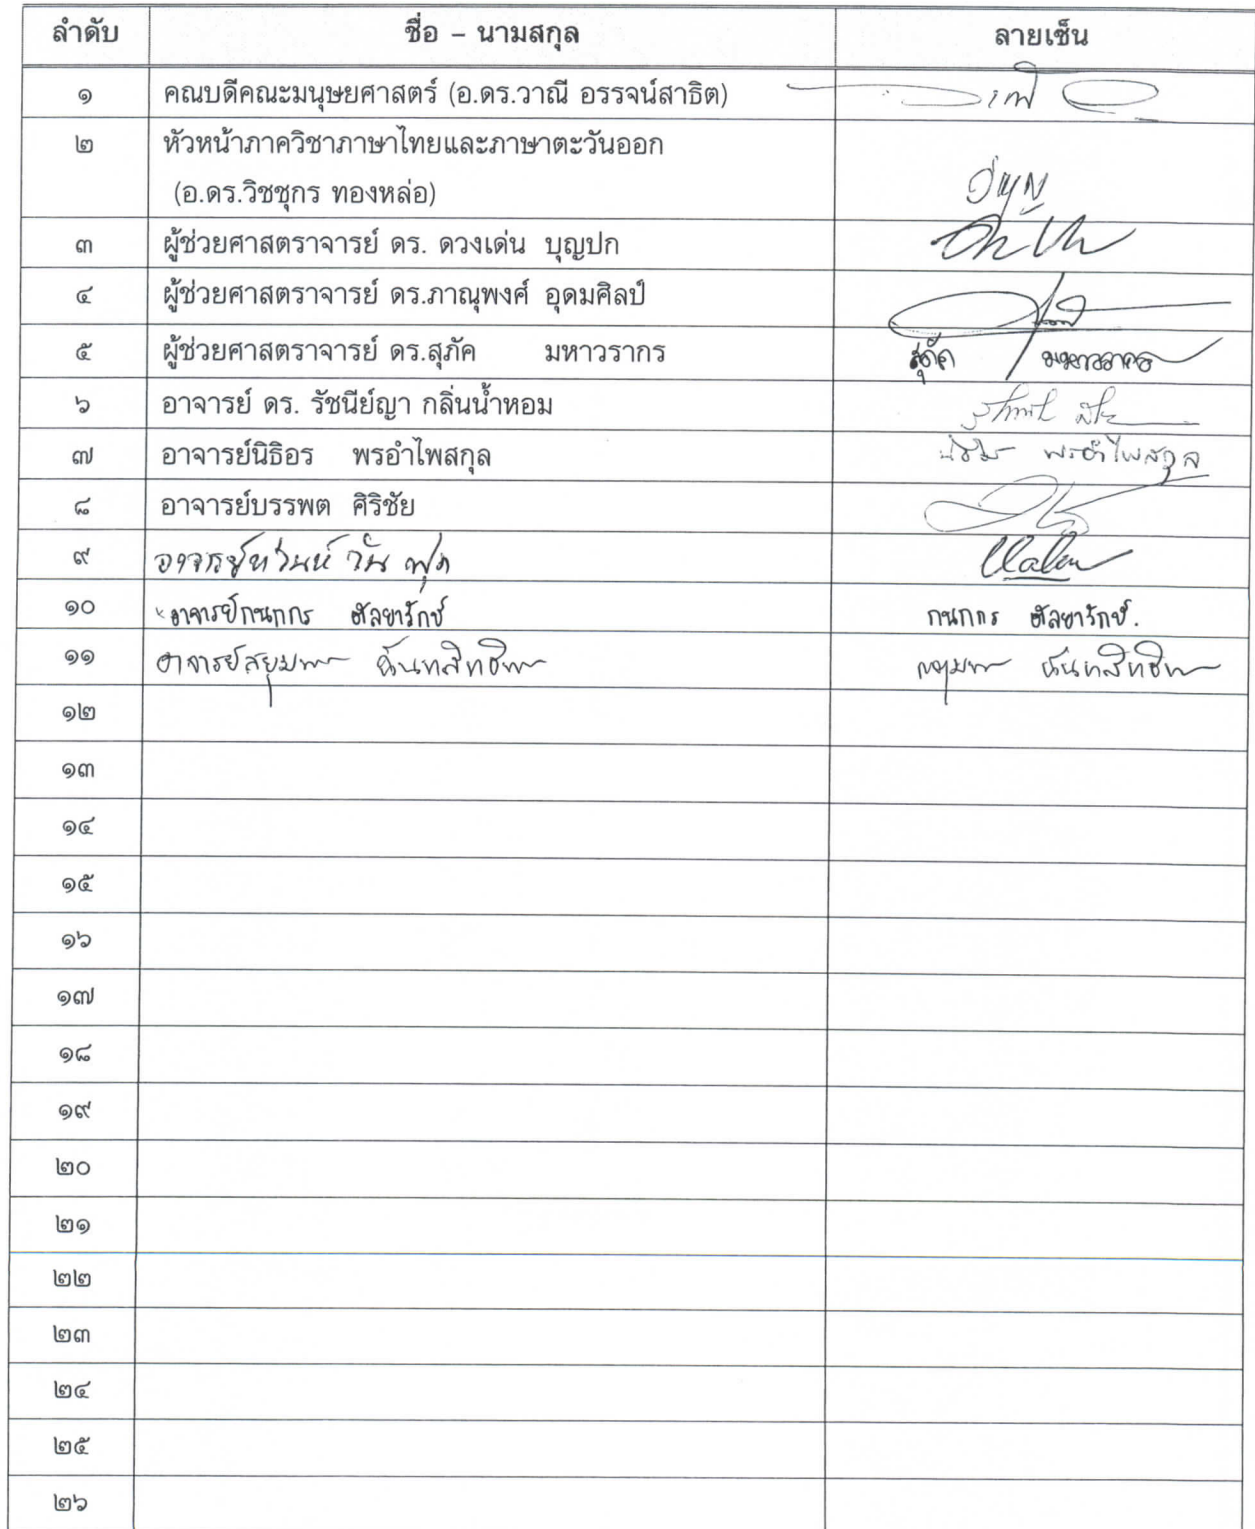 ลำดับ ชื่อ – นามสกุล ลายเซ็น
๑ คณบดีคณะมนุษยศาสตร์ (อ.ดร.วาณี อรรจน์สาธิต)
๒ หัวหน้าภาควิชาภาษาไทยและภาษาตะวันออก
(อ.ดร.วิชชุกร ทองหล่อ)
๓ ผู้ช่วยศาสตราจารย์ ดร. ดวงเด่น บุญปก
๔ ผู้ช่วยศาสตราจารย์ ดร.ภาณุพงศ์ อุดมศิลป์
๕ ผู้ช่วยศาสตราจารย์ ดร.สุภัค มหาวรากร สุภัค มหาวรากร
๖ อาจารย์ ดร. รัชนีย์ญา กลิ่นน้ำหอม
๗ อาจารย์นิธิอร พรอำไพสกุล นิธิอร พรอำไพสกุล
๘ อาจารย์บรรพต ศิริชัย
๙ อาจารย์
๑๐ อาจารย์กนกกร ตัลยารักษ์ กนกกร ตัลยารักษ์.
๑๑ อาจารย์
๑๒
๑๓
๑๔
๑๕
๑๖
๑๗
๑๘
๑๙
๒๐
๒๑
๒๒
๒๓
๒๔
๒๕
๒๖